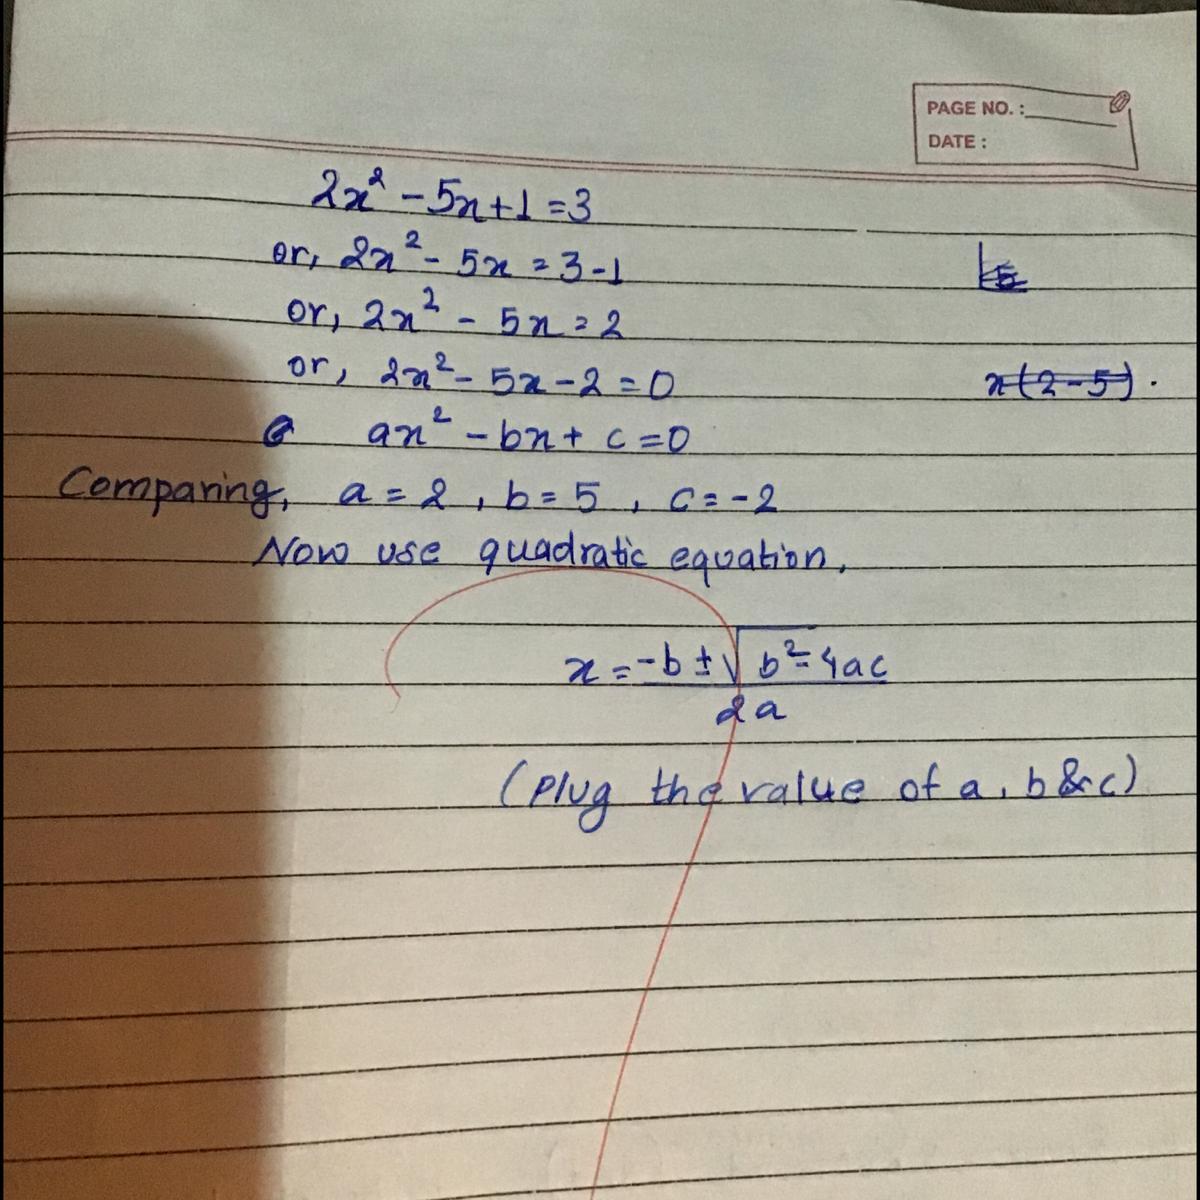 PAGE NO. :
DATE :
2x² - 5x + 1 = 3
or, 2x² - 5x = 3 - 1
or, 2x² - 5x = 2
or, 2x² - 5x - 2 = 0
x(2-5).
ax² - bx + c = 0
Comparing, a = 2, b = 5, c = -2
Now use quadratic equation,
x = -b ± √b² - 4ac
2a
(Plug the value of a, b & c)